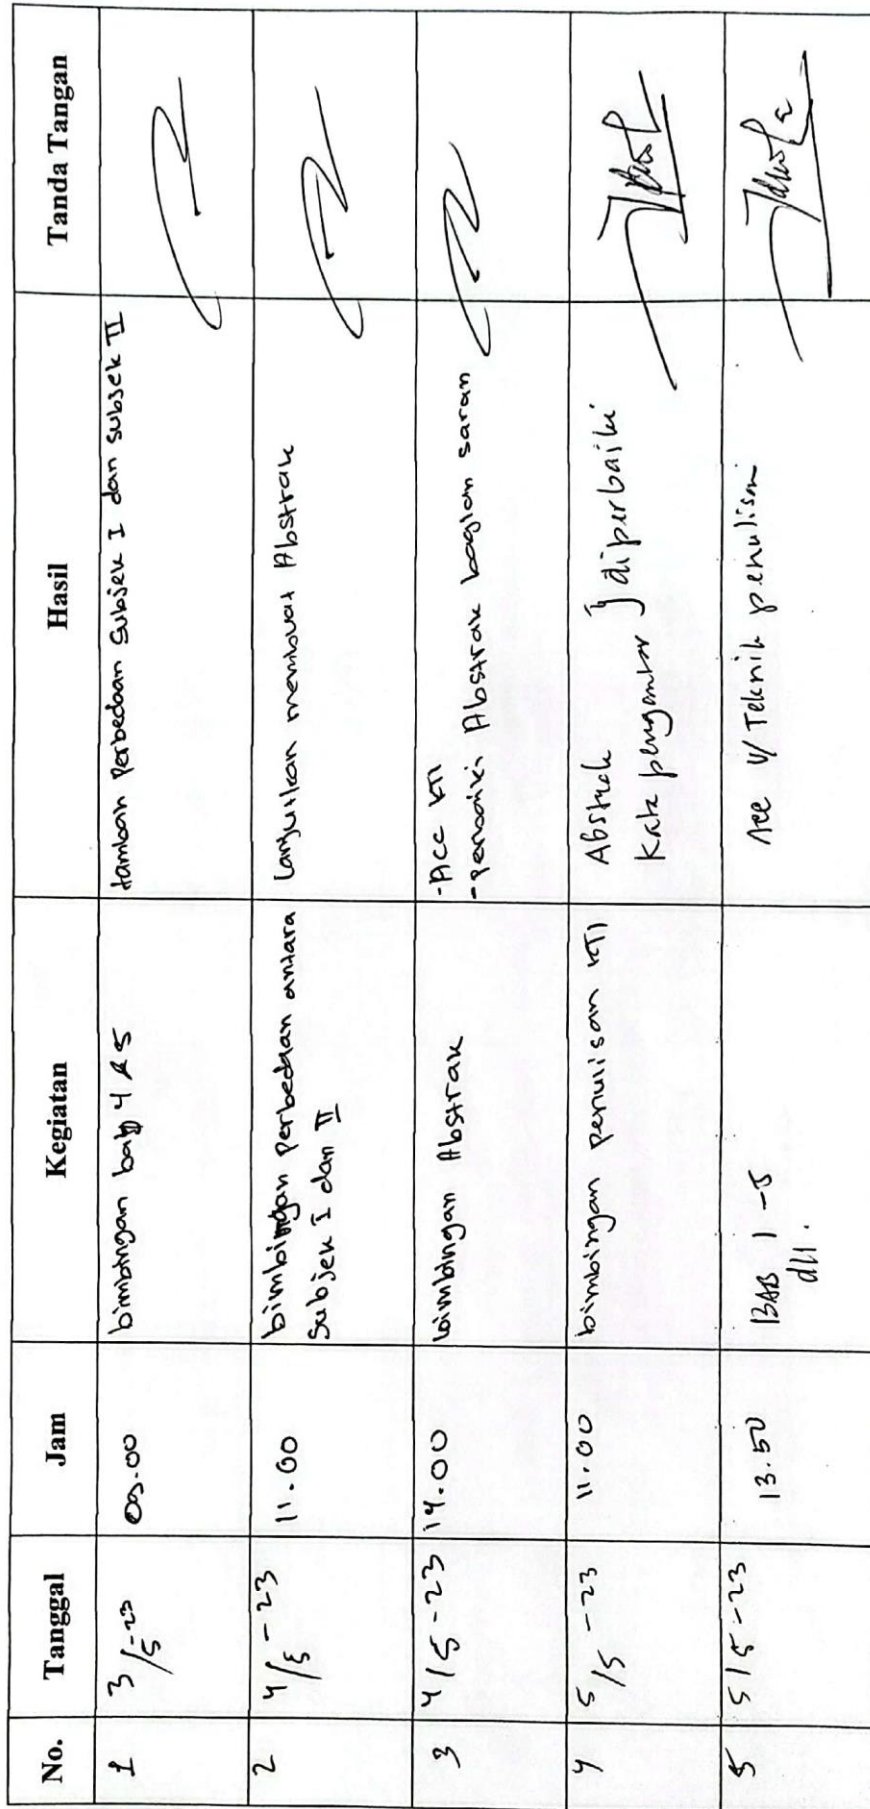 No. Tanggal Jam Kegiatan Hasil Tanda Tangan
1 3/5-23 09.00 bimbingan bab 4 & 5 tambah perbedaan subjek I dan subjek II
2 4/5-23 11.00 bimbingan perbedaan antara lanjutkan membuat Abstrak
Subjek I dan II
3 4/5-23 14.00 bimbingan Abstrak -Acc KTI
-perbaiki Abstrak bagian saran
4 5/5-23 11.00 bimbingan penulisan KTI Abstrak
Kata pengantar } diperbaiki
5 5/5-23 13.50 BAB 1-5 Acc Teknik penulisan
dll.